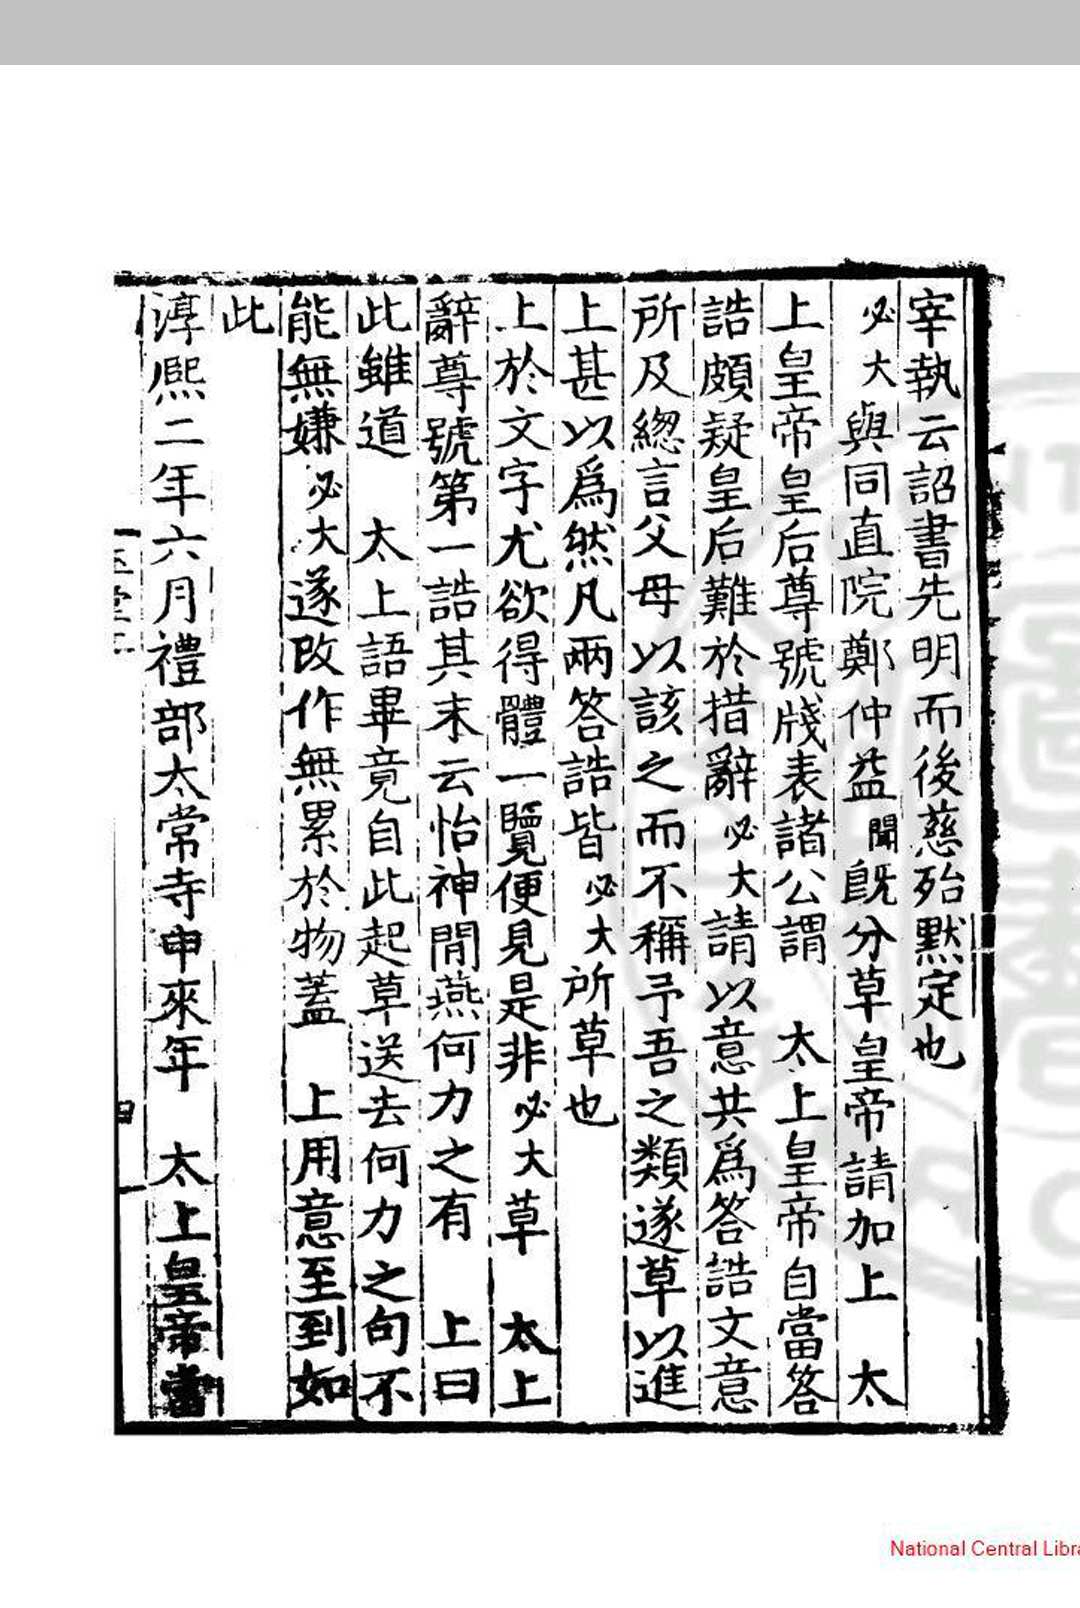 宰執云詔書先明而後慈殆默定也
必大與同直院鄭仲益聞既分草皇帝請加上　太
上皇帝皇后尊號牋表諸公謂　太上皇帝自當答
誥頗疑皇后難於措辭必大請以意共爲答誥文意
所及緫言父母以該之而不稱予吾之類遂草以進
上甚以爲然凡兩答誥皆必大所草也
上於文字尤欲得體一覽便見是非必大草　太上
辭尊號第一誥其末云怡神閒燕何力之有　上曰
此雖道　太上語畢竟自此起草送去何力之句不
能無嫌必大遂改作無累於物蓋　上用意至到如
此
淳熙二年六月禮部太常寺申來年　太上皇帝當
National Central Libra